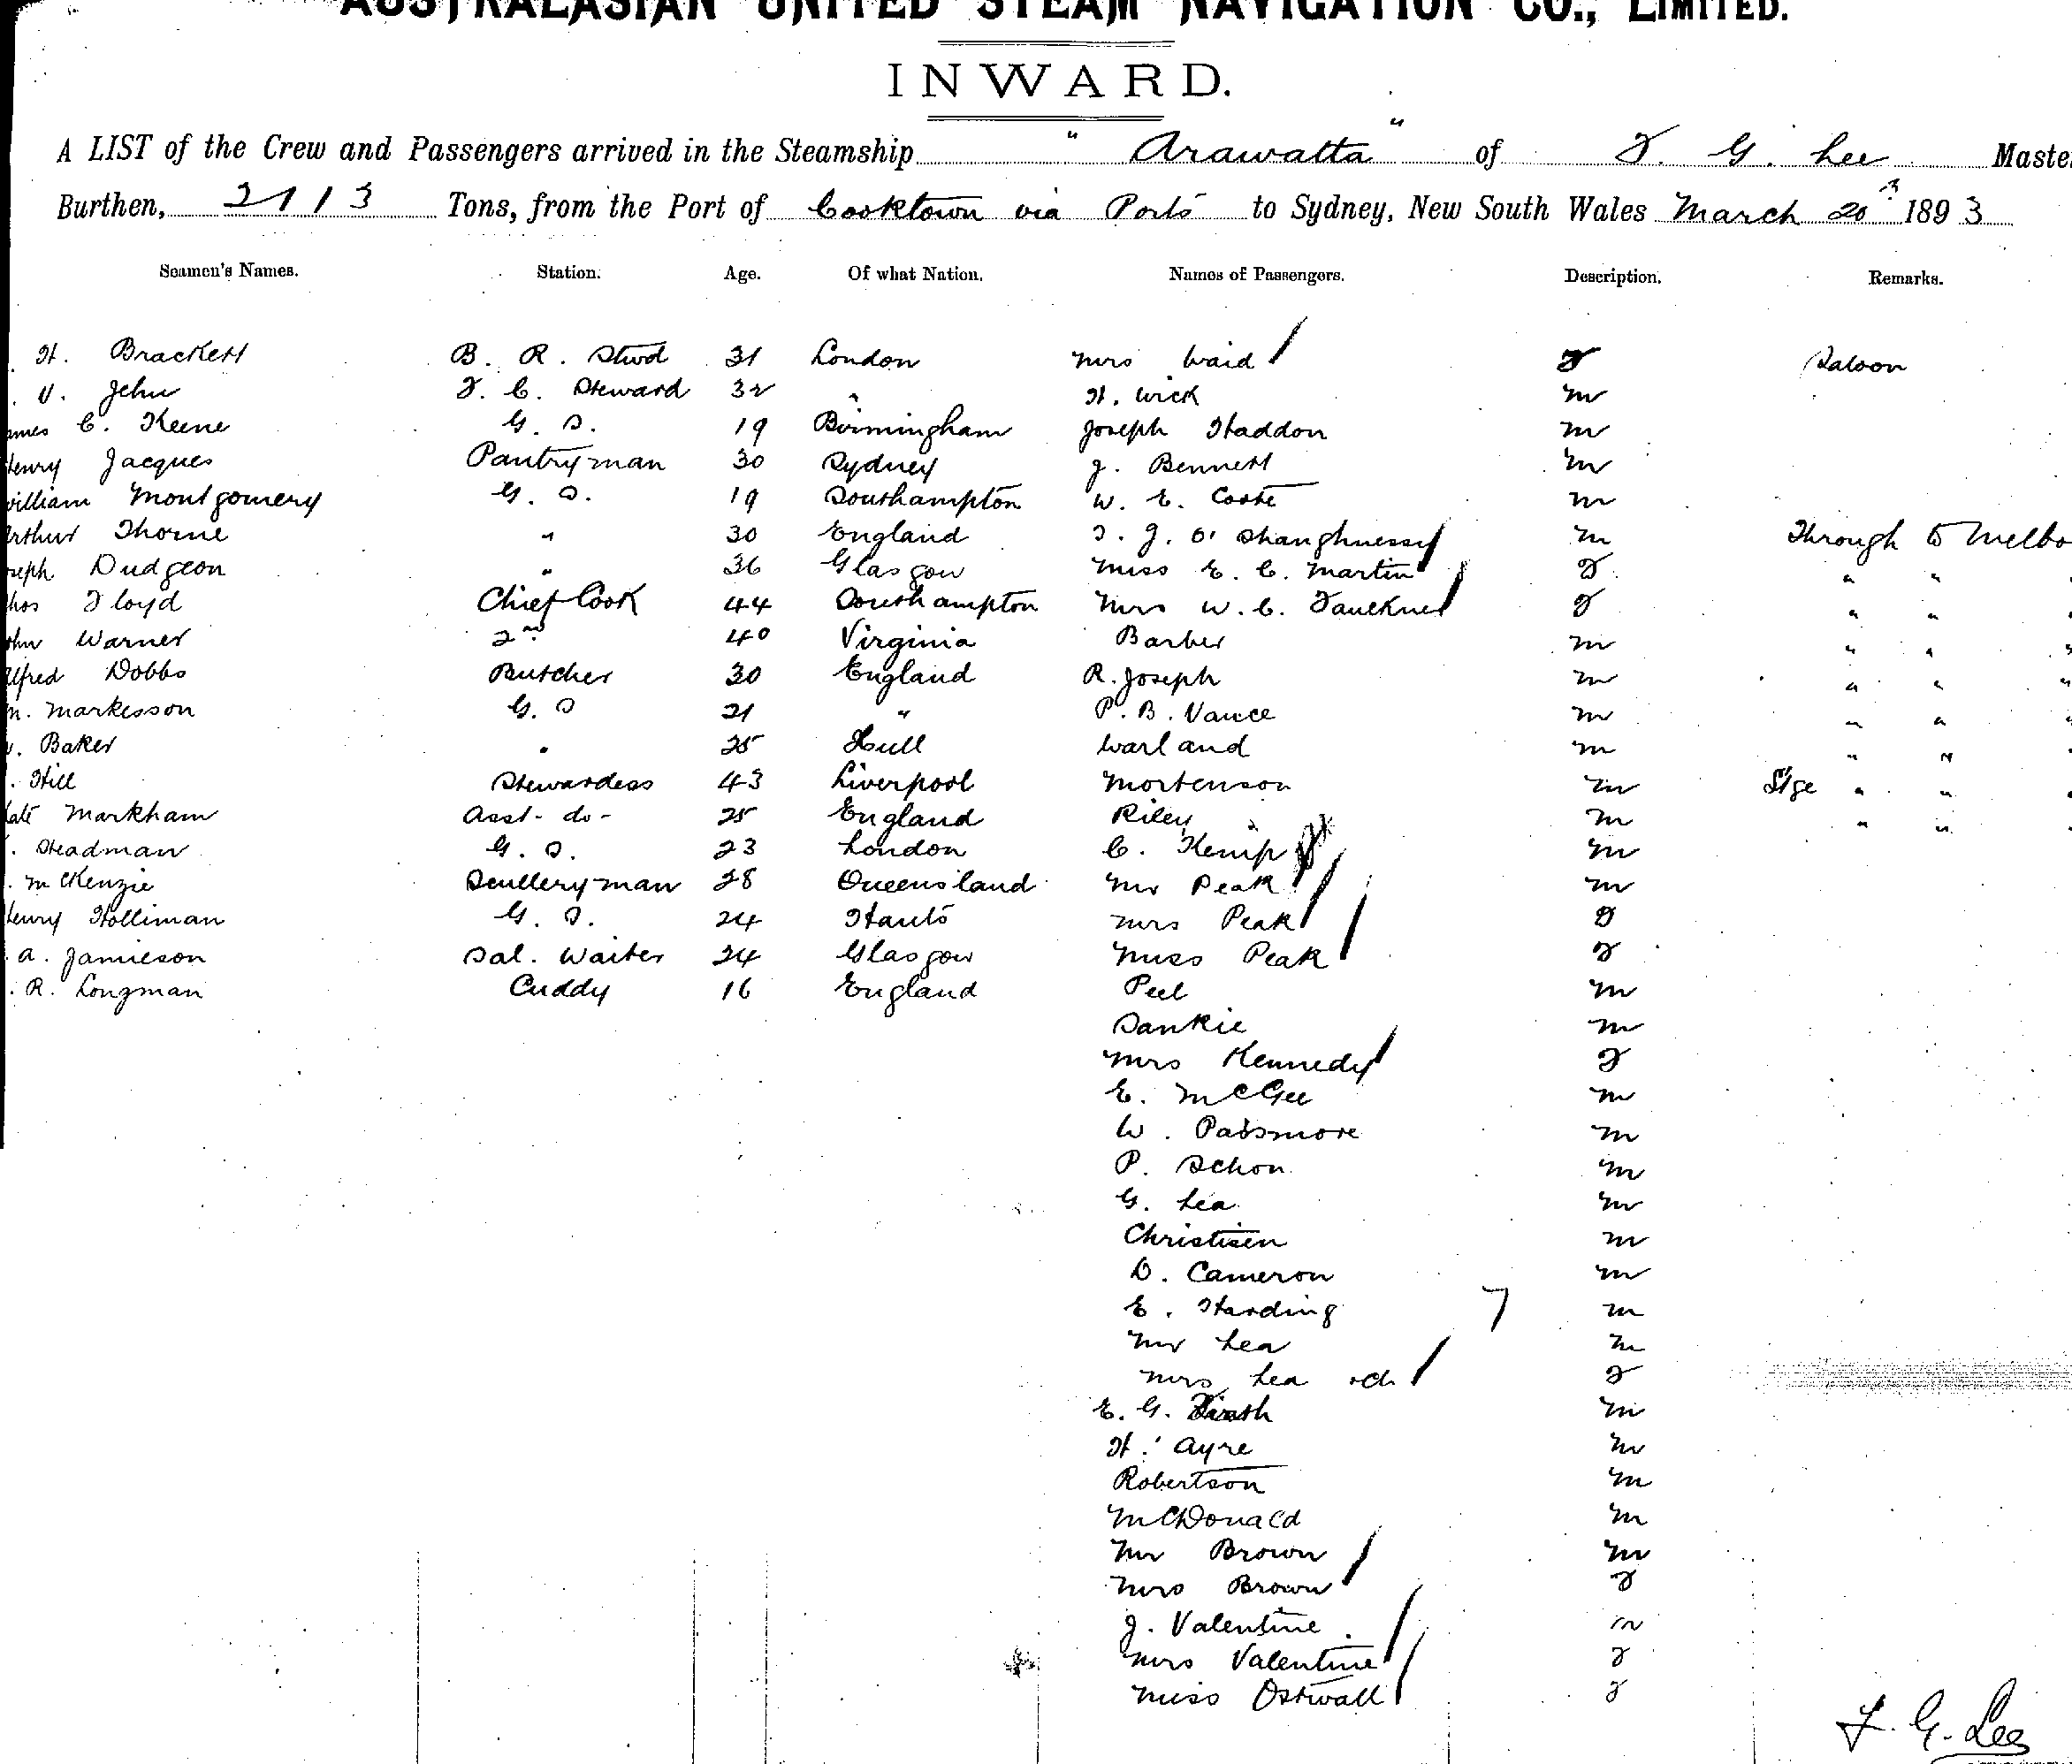 AUSTRALASIAN UNITED STEAM NAVIGATION CO., LIMITED.
INWARD.
A LIST of the Crew and Passengers arrived in the Steamship "Arawatta" of F. G. Lee Maste
Burthen, 2113 Tons, from the Port of Cooktown via Ports to Sydney, New South Wales March 20th 1893
Seamen's Names. Station. Age. Of what Nation. Names of Passengers. Description. Remarks.
H. Brackett B. R. Stwd 31 London Mrs Waid F Saloon
V. Jehu F. C. Steward 32 " H. Wick M
ames C. Keene G. S. 19 Birmingham Joseph Haddon M
Henry Jacques Pantryman 30 Sydney J. Bennett M
William Montgomery G. S. 19 Southampton W. E. M
Arthur Thorne " 30 England J. O'Shaughnessy M Through to Melbo
seph Dudgeon " 36 Glasgow Miss E. C. Martin F " "
hos Floyd Chief Cook 44 Southampton Mrs W. C. Faulkner F " "
ohn Warner 2nd 40 Virginia Barber M " " "
Alfred Dobbs Butcher 30 England R. Joseph M " " "
m. Markesson G. S 21 " P. B. Vance M " " "
Baker " 25 Hull Warland M " " "
Hill Stewardess 43 Liverpool Mortenson M Stge " " "
Kate Markham Asst- do- 25 England Riley M " " "
Steadman G. S. 23 London C. Kemp M
McKenzie Sculleryman 28 Queensland Mr Peak M
Henry Holliman G. S. 24 Hants Mrs Peak F
A. Jamieson Sal. Waiter 24 Glasgow Miss Peak F
R. Longman Cuddy 16 England Peel M
Sankie M
Mrs Kennedy F
E. McGee M
W. Passmore M
P. Schon M
G. Lea M
Christisen M
D. Cameron M
E. Harding M
Mr Lea M
Mrs Lea + ch F
E. G. M
H. Ayre M
Robertson M
McDonald M
Mr Brown M
Mrs Brown F
J. Valentine M
Mrs Valentine F
Miss Ostwall F
F. G. Lee